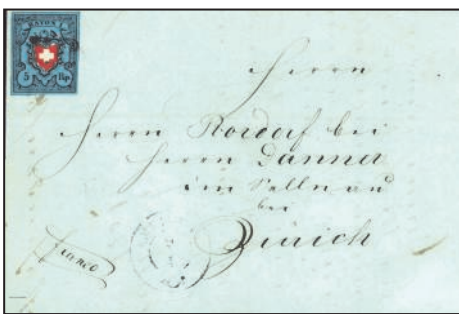 RAYON
5 Rp.
Herrn
Herrn Rordorf bei
Herrn Danner
im Sellnau
bei
Zürich
franco